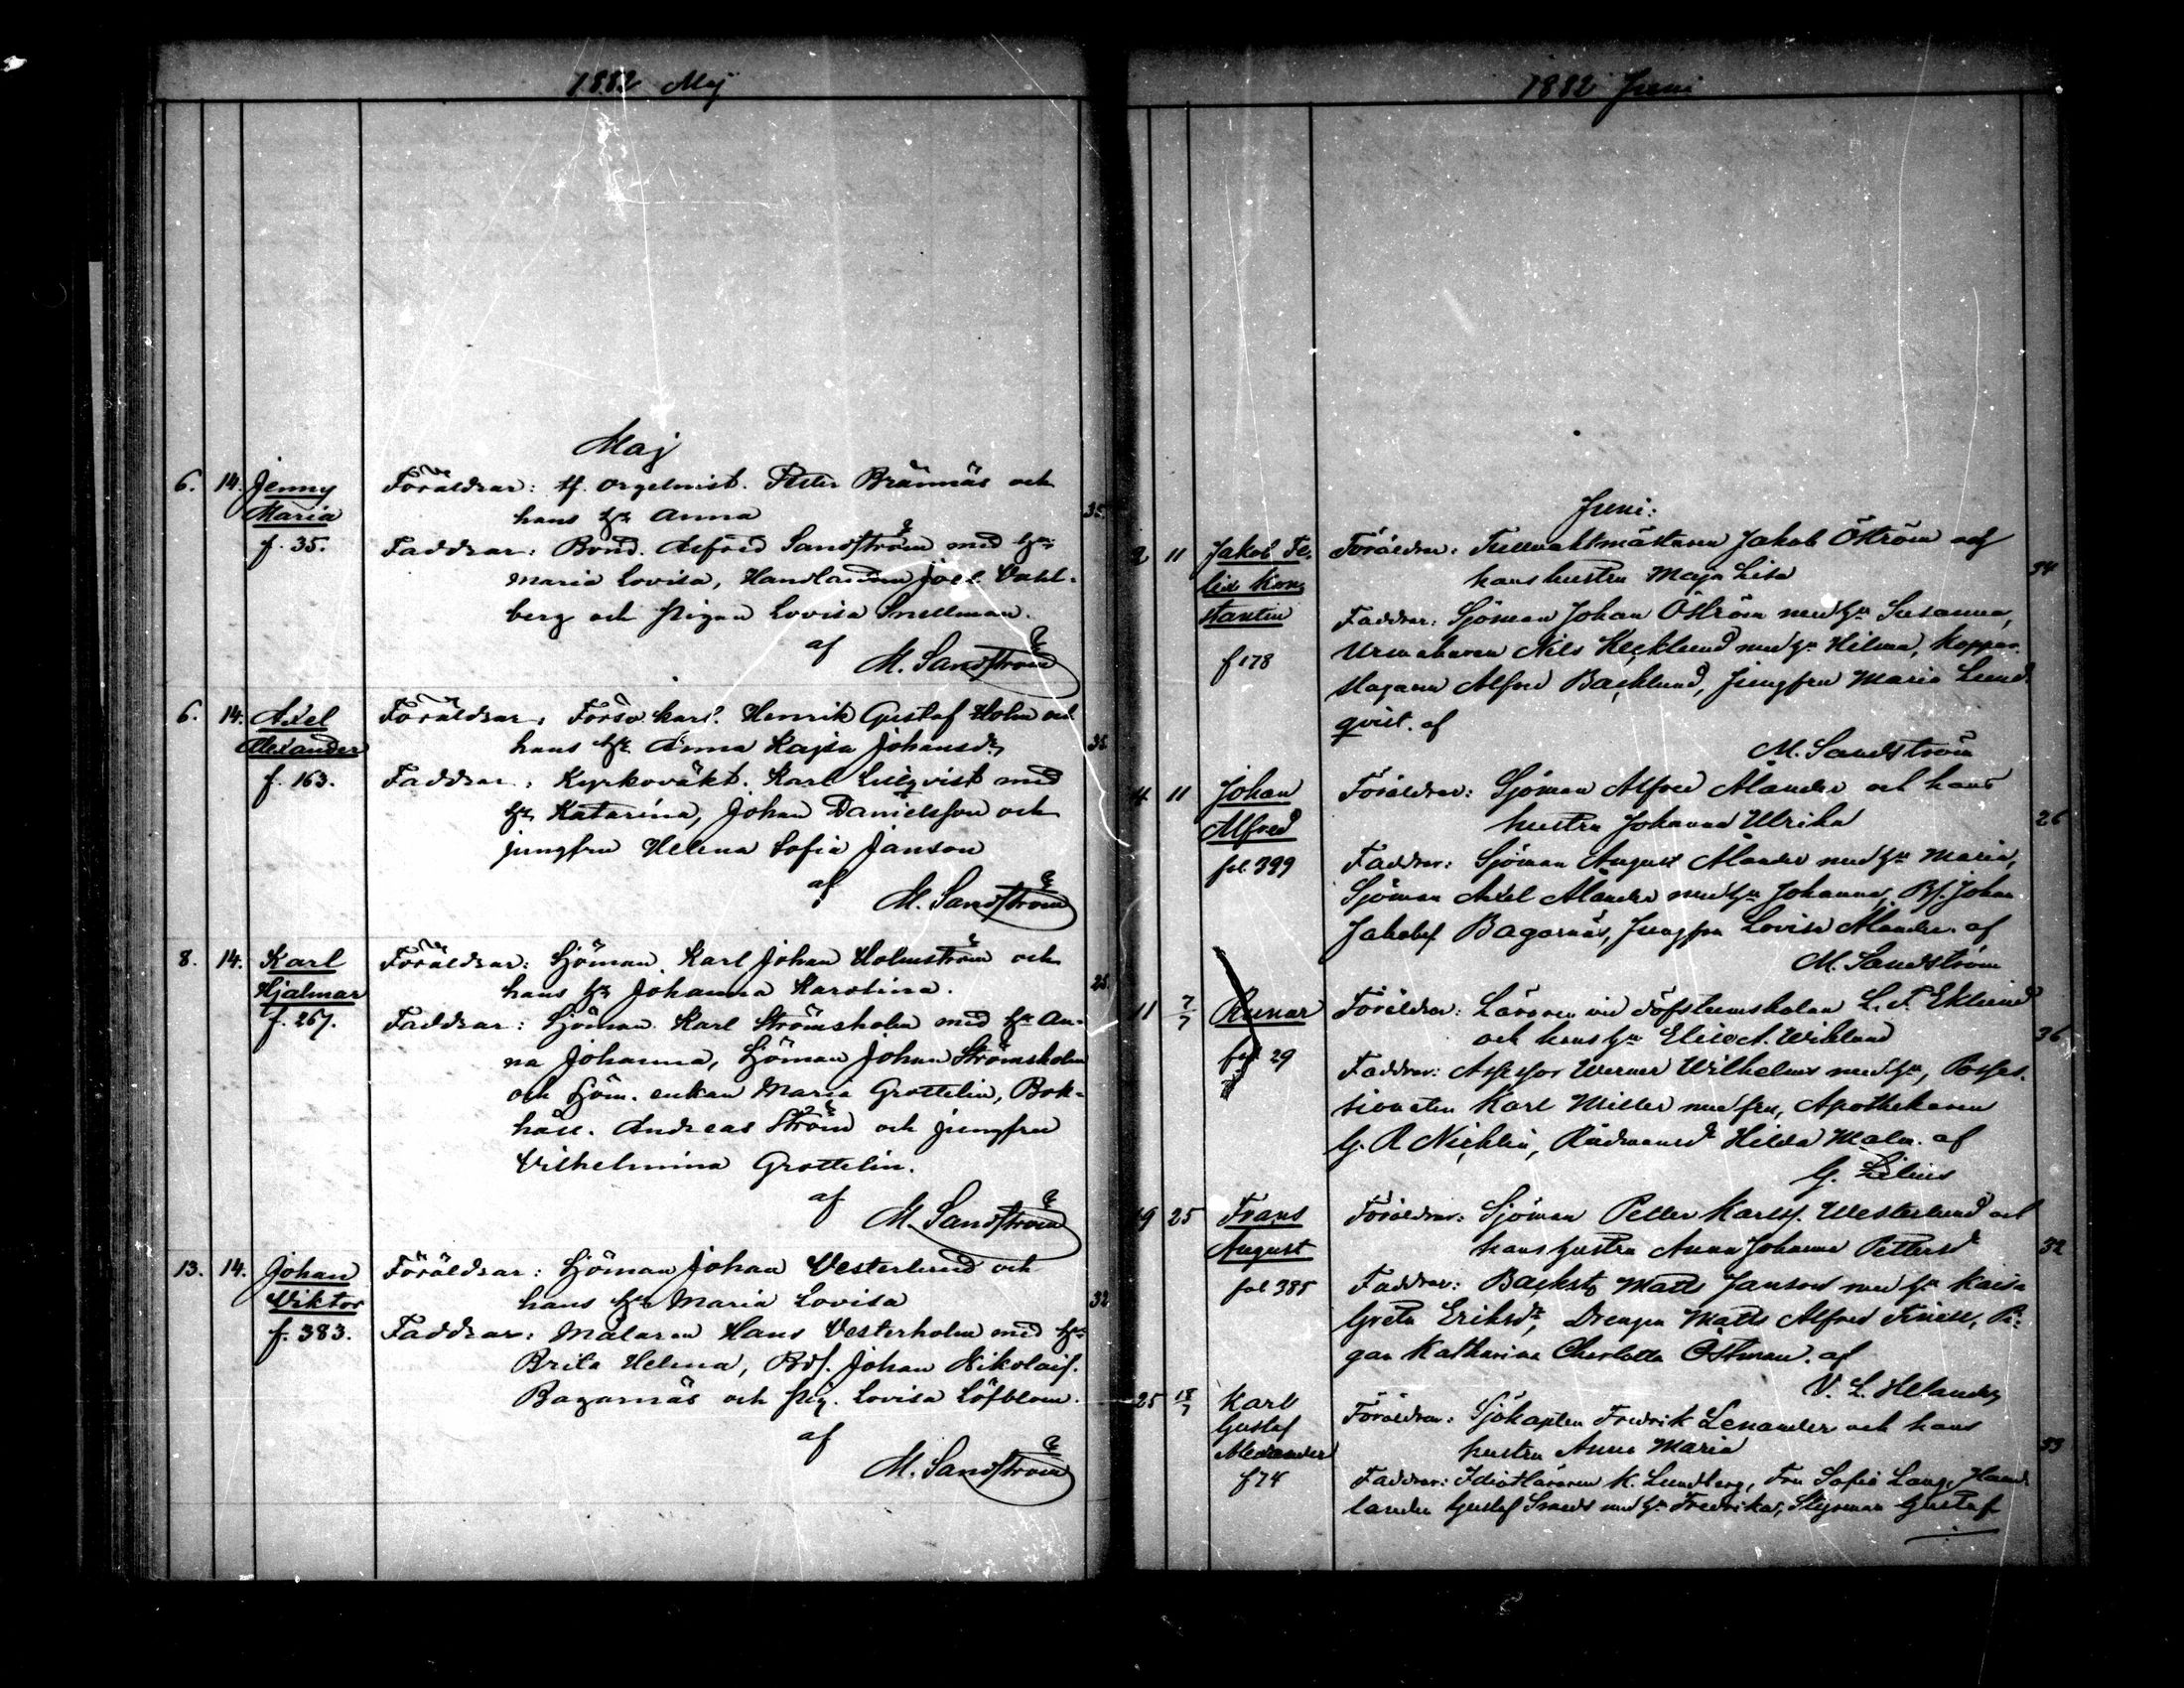 1882 Maj
Maj
6. 14. Jenny Föräldrar: tf. orgelnist. Petter Brännäs och
Maria hans hu Anna 35
f. 35. Faddrar: Bond. Alfred Sandström med hu
Maria Lovisa, Handlanden Joel Vahl-
berg och pigan Lovisa Snellman.
af
M. Sandström
6. 14. Axel Föräldrar: Försv. karl. Henrik Gustaf Holm och
Alexander hans hu Anna Kajsa Johansdr 36
f. 163. Faddrar: Kyrkoväkt. Karl Liljqvist med
hu Katarina, Johan Danielsson och
jungfru Helena Sofia Janson
af
M. Sandström
8. 14. Karl Föräldrar: Sjöman Karl Johan Holmström och
Hjalmar hans hu Johanna Karolina. 25
f. 267. Faddrar: Sjöman Karl Strömsholm med hu An-
na Johanna, Sjöman Johan Strömsholm
och Sjöm. enkan Maria Grottelin, Bok-
håll. Andreas Ström och jungfru
Vilhelmina Grottelin.
af
M. Sandström
13. 14. Johan Föräldrar: Sjöman Johan Vesterlund och
Viktor hans hu Maria Lovisa 32
f. 383. Faddrar: Målaren Hans Vesterholm med hu
Brita Helena, Bds. Johan Nikolais.
Bagarnäs och pig. Lovisa Löfblom.
af
M. Sandström
1882 Juni
Juni:
2 11 Jakob Fe- Föräldrar: Tullvaktmästaren Jakob Öström och
lix Kon- hans hustru Maja Lisa 34
stantin Faddrar: Sjöman Johan Öström med hu Susanna,
f 178 Urmakaren Nils Häcklund med hu Hilma, Koppar-
slagaren Alfred Backlund, Jungfru Maria Lund
qvist. af
M. Sandström
4 11 Johan Föräldrar: Sjöman Alfred Ålander och hans
Alfred hustru Johanna Ulrika 26
fol. 399 Faddrar: Sjöman August Ålander med hu Maria,
Sjöman Axel Ålander med hu Johanna, Bs. Johan
Jakobs Bagarnäs, Jungfru Lovisa Ålander. af
M. Sandström
11 7/7 Runar Föräldrar: Läraren vid döfstumskolan L. F. Eklund
fol 29 och hans hu Elise A. Wiklund 36
Faddrar: Assessor Werner Wilhelms med hu, Posses-
sionaten Karl Miller med fru, Apothekaren
G. R Nicklin, Rådmansdr Hilda Malm. af
G. Lilius
19 25 Frans Föräldrar: Sjöman Petter Karls. Westerlund och
August hans hustru Anna Johanna Pettersdr 32
fol 385 Faddrar: Backst. Matts Janson med hu Kaisa
Greta Eriksdr, Drengen Matts Alfred Finell, Pi-
gan Katharina Charlotta Östman. af
V. L. Helander
25 18/7 Karl Föräldrar: Sjökapten Fredrik Lenander och hans
Gustaf hustru Anna Maria 33
Alexander Faddrar: Idiotläraren K. Lundberg, Fru Sofia Lang, Hand
f 74 landen Gustaf Smeds med hu Fredrika, Styrman Gustaf